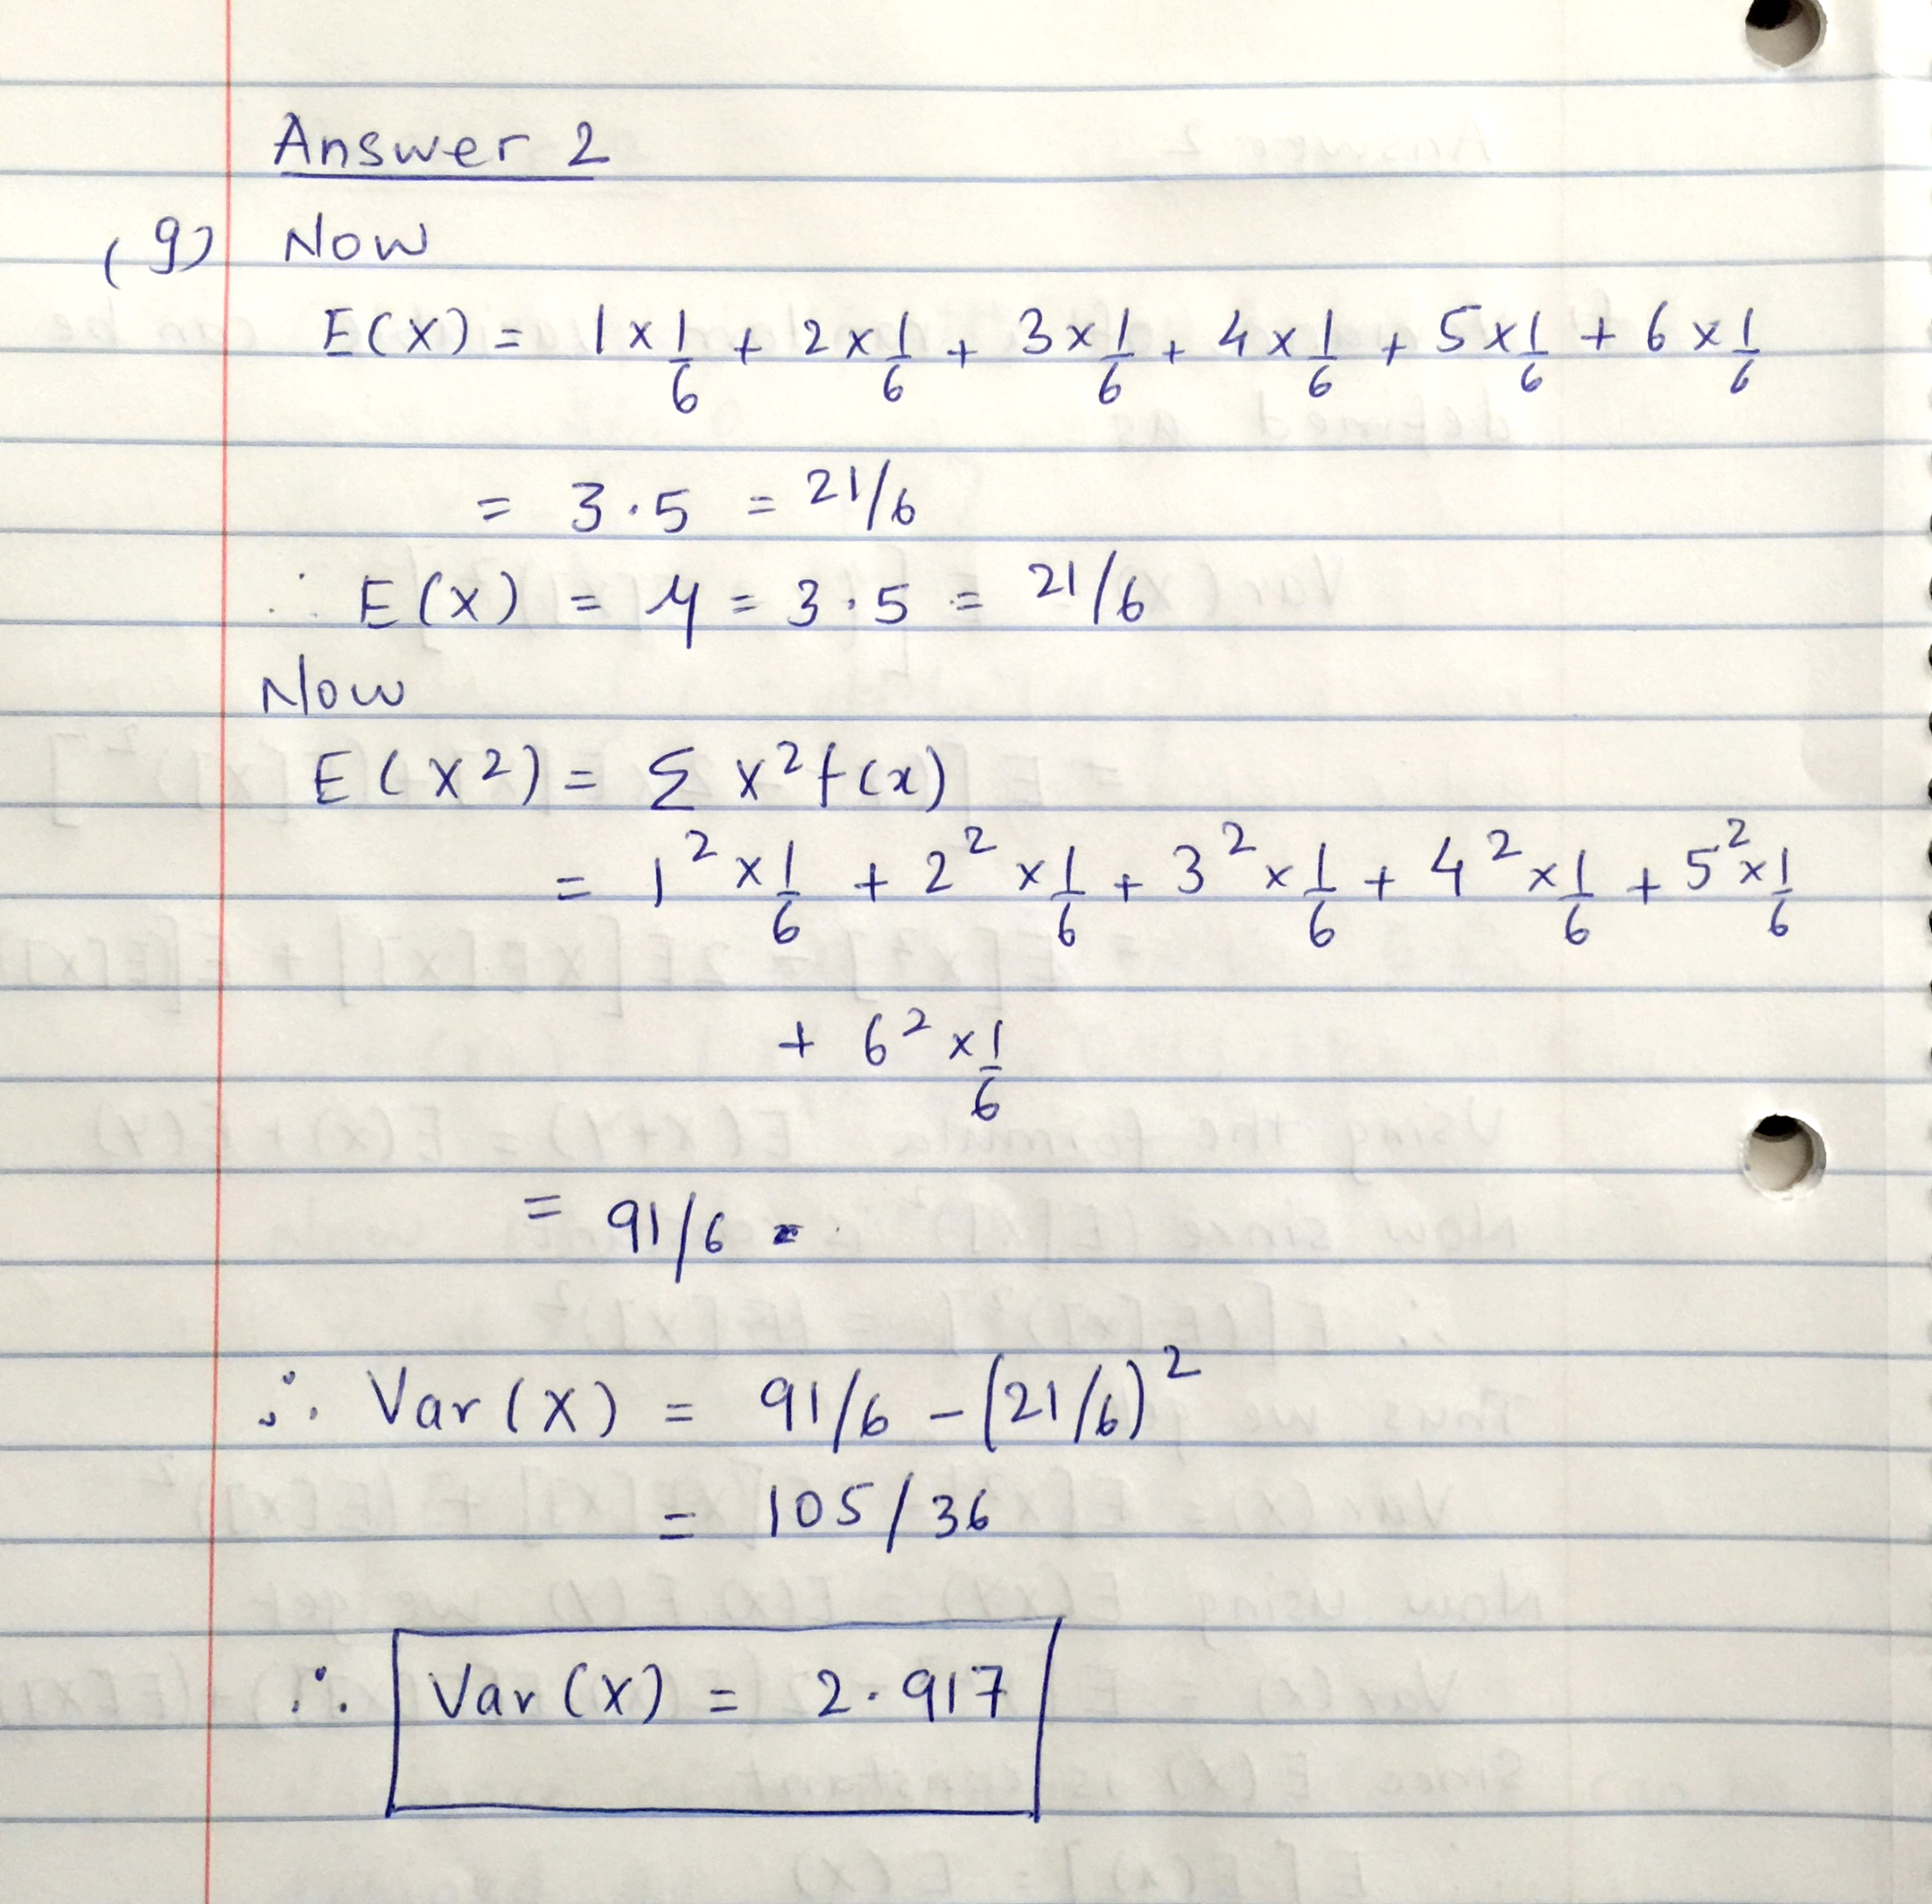 Answer 2
(g) Now
E(X) = 1 × 1/6 + 2 × 1/6 + 3 × 1/6 + 4 × 1/6 + 5 × 1/6 + 6 × 1/6
= 3.5 = 21/6
∴ E(X) = μ = 3.5 = 21/6
Now
E(X²) = Σ x² f(x)
= 1² × 1/6 + 2² × 1/6 + 3² × 1/6 + 4² × 1/6 + 5² × 1/6
+ 6² × 1/6
= 91/6
∴ Var(X) = 91/6 - (21/6)²
= 105/36
∴ Var(X) = 2.917